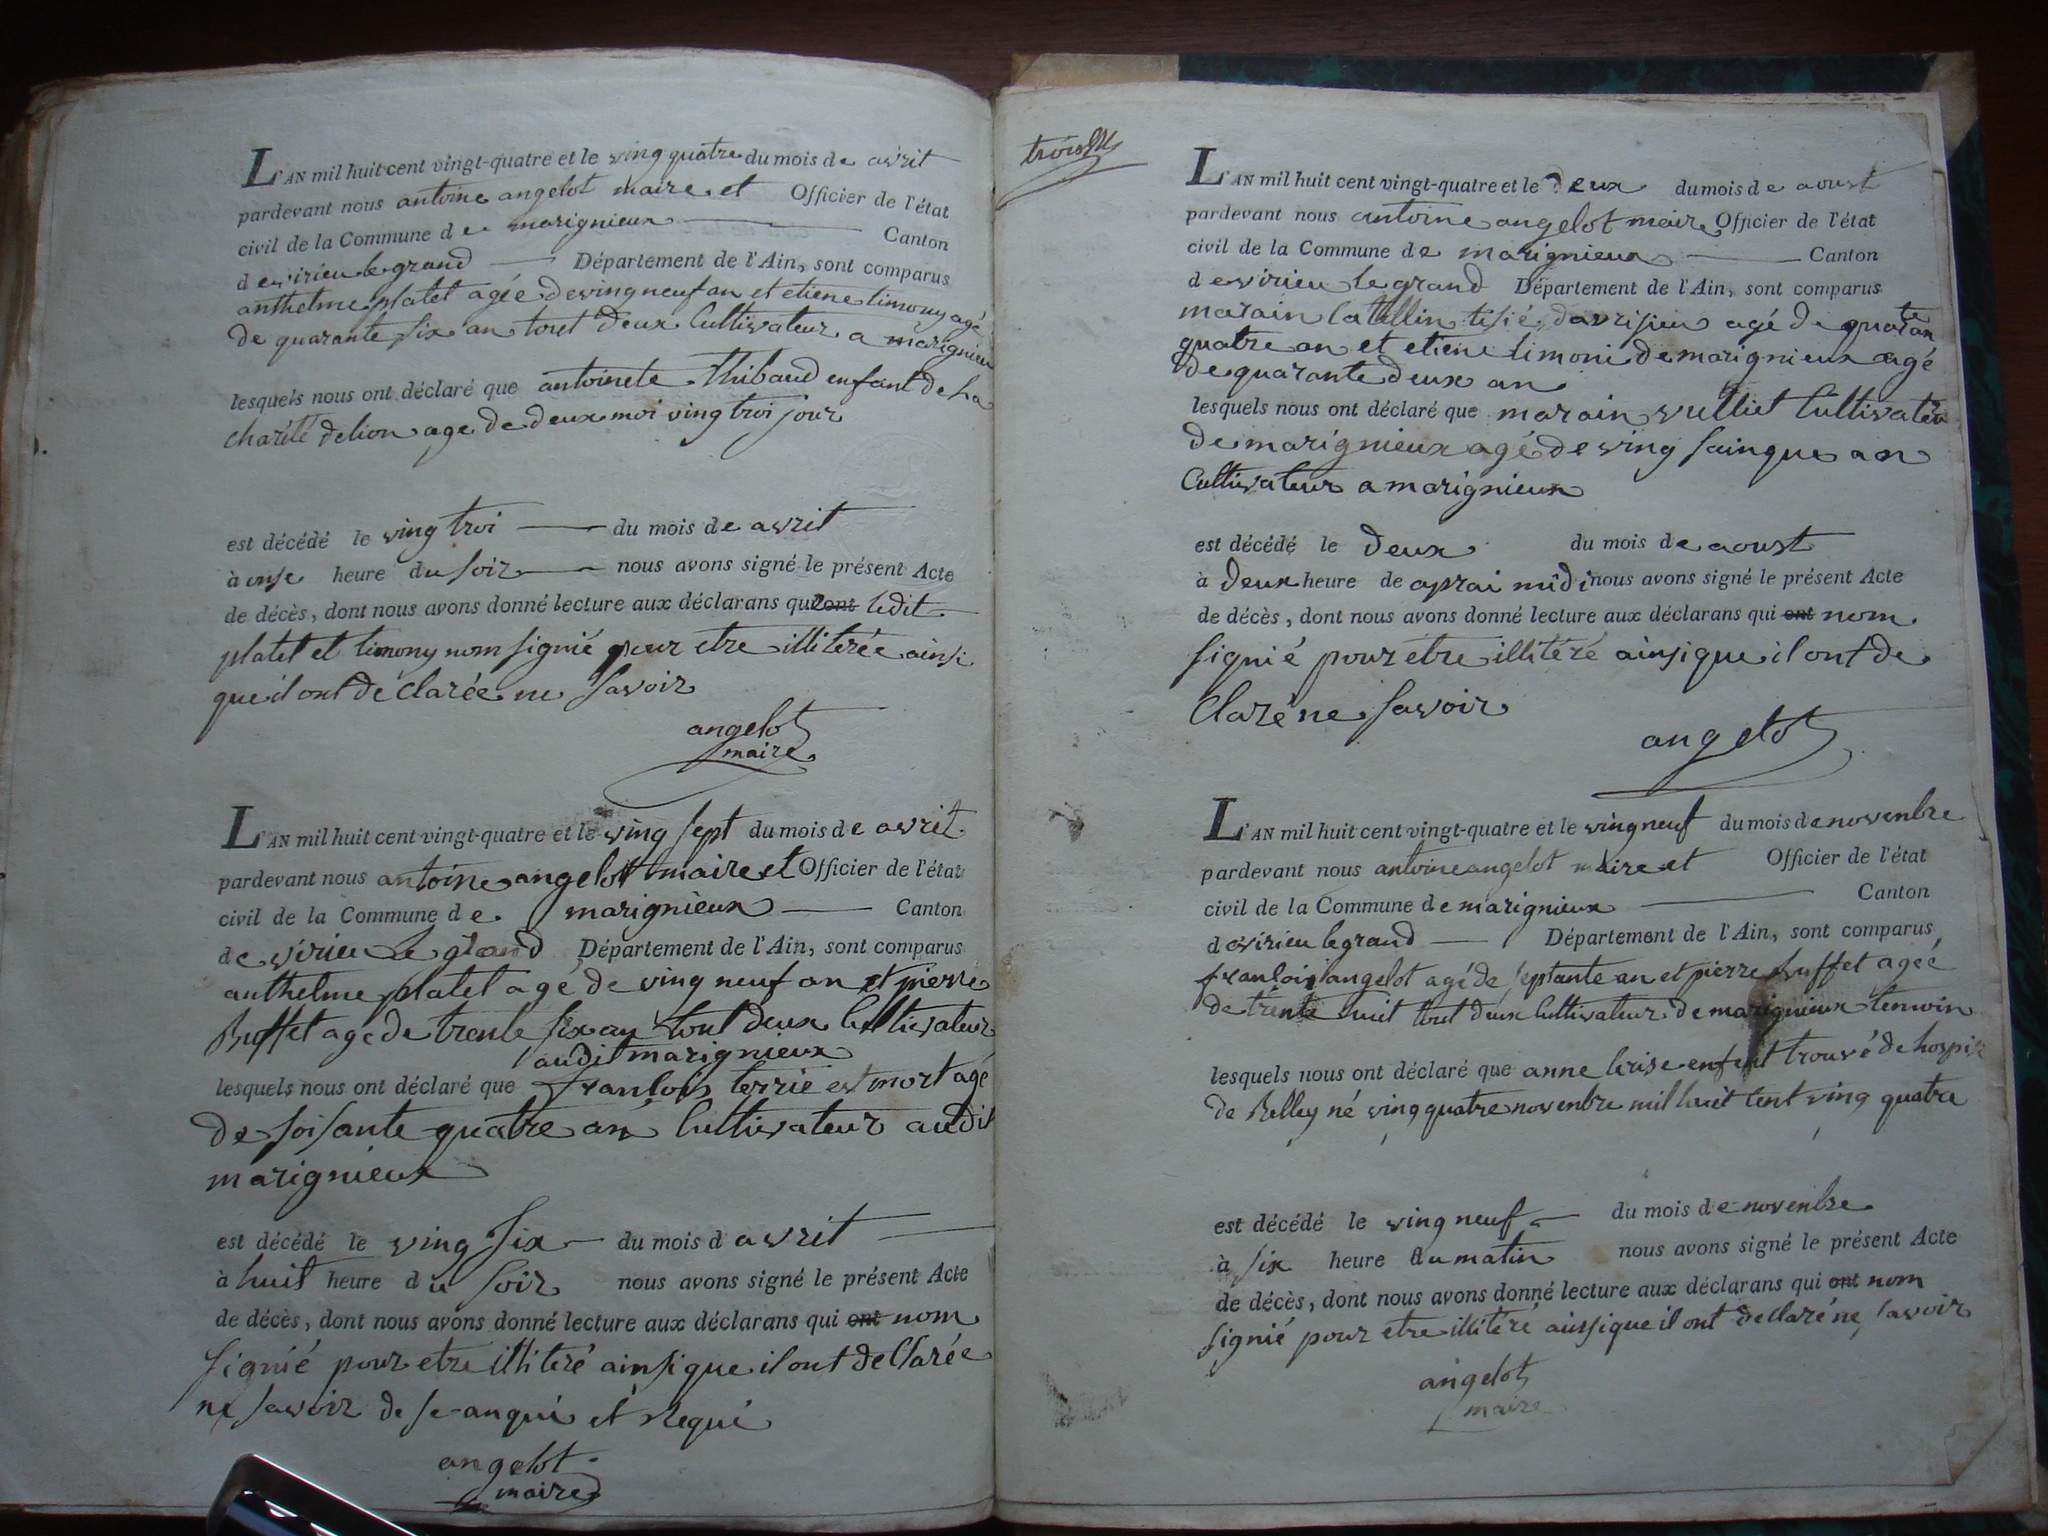 L'AN mil huit cent vingt-quatre et le ving quatre du mois de avril
pardevant nous antoine angelot maire et Officier de l'état
civil de la Commune de marignieux Canton
de virieu le grand Département de l'Ain, sont comparus
anthelme platet agée de ving neuf an et etiene timony agé
de quarante six an tout deux Cultivateur a marignieux
lesquels nous ont déclaré que antoinete Thibaud enfant de la
charité de lion age de deux moi ving troi jour
est décédé le ving troi du mois de avril
à onse heure du soir nous avons signé le présent Acte
de décès, dont nous avons donné lecture aux déclarans qui ont ledit
platet et timony nom signié pour etre illiterée ainsi
que il ont de clarée ne savoir
angelot
maire
L'AN mil huit cent vingt-quatre et le ving sept du mois de avril
pardevant nous antoine angelot maire et Officier de l'état
civil de la Commune de marignieux Canton
de virieu le grand Département de l'Ain, sont comparus
anthelme platet agé de ving neuf an et pierre
Buffet age de trente six an tout deux Cultivateur
audit marignieux
lesquels nous ont déclaré que francois terrie est mort agé
de soisante quatre an Cultivateur audit
marignieux
est décédé le ving six du mois d avril
à huit heure du soir nous avons signé le présent Acte
de décès, dont nous avons donné lecture aux déclarans qui ont nom
signié pour etre illiteré ainsi que il ont de Clarée
ne savoir de se anqui et Requi
angelot
maire
trois
L'AN mil huit cent vingt-quatre et le deux du mois de aoust
pardevant nous antoine angelot maire Officier de l'état
civil de la Commune de marignieux Canton
de virieu le grand Département de l'Ain, sont comparus
marain Catellin tisié davrisieu agé de quarante
quatre an et etiene timoni de marignieux agé
de quarante deux an
lesquels nous ont déclaré que marain vulliet Cultivateur
de marignieux agé de ving sainque an
Cultivateur a marignieux
est décédé le deux du mois de aoust
à deux heure de aprai midi nous avons signé le présent Acte
de décès, dont nous avons donné lecture aux déclarans qui ont nom
signié pour etre illitéré ainsi que il ont de
Claré ne savoir
angelot
L'AN mil huit cent vingt-quatre et le ving neuf du mois de novenbre
pardevant nous antoine angelot maire et Officier de l'état
civil de la Commune de marignieux Canton
de virieu le grand Département de l'Ain, sont comparus
francois angelot agé de septante an et pierre buffet agée
de trente huit tout deux Cultivateur de marignieux temoin
lesquels nous ont déclaré que anne enfent trouvé de hospis
de Belley né ving quatre novenbre mil huit cent ving quatre
est décédé le ving neuf du mois de novenbre
à six heure du matin nous avons signé le présent Acte
de décès, dont nous avons donné lecture aux déclarans qui ont nom
signié pour etre illitéré ainsi que il ont declaré ne savoir
angelot
maire